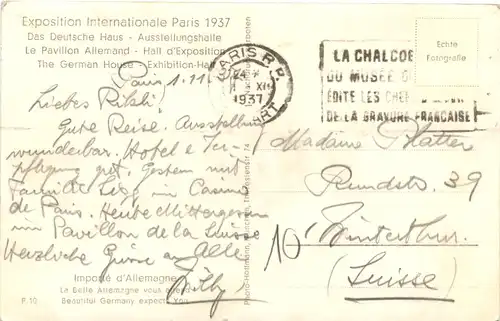 Exposition Internationale Paris 1937
Das Deutsche Haus - Ausstellungshalle
Le Pavillon Allemand - Hall d'Exposition
The German House - Exhibition-Hall
Paris 1.11
Liebes
Gute Reise. Ausstellung
wunderbar. Hotel & Ver-
pflegung gut. Gestern mit
Familie in Casino
de Paris. Heute Mittagessen
im Pavillon de la Suisse
Herzliche Grüsse an Alle.
Willy
Importé d'Allemagne
La Belle Allemagne vous attend
Beautiful Germany expects You
P. 10
PARIS R.P.
1937
DÉPART
LA CHALCO
DU MUSÉE
ÉDITE LES CHEFS D'
DE LA GRAVURE FRANÇAISE
Echte
Fotografie
Madame Platter
Rundstr. 39
10
Winterthur.
(Suisse)
Photo-Hoffmann, München, Theresienstr. 74
verboten